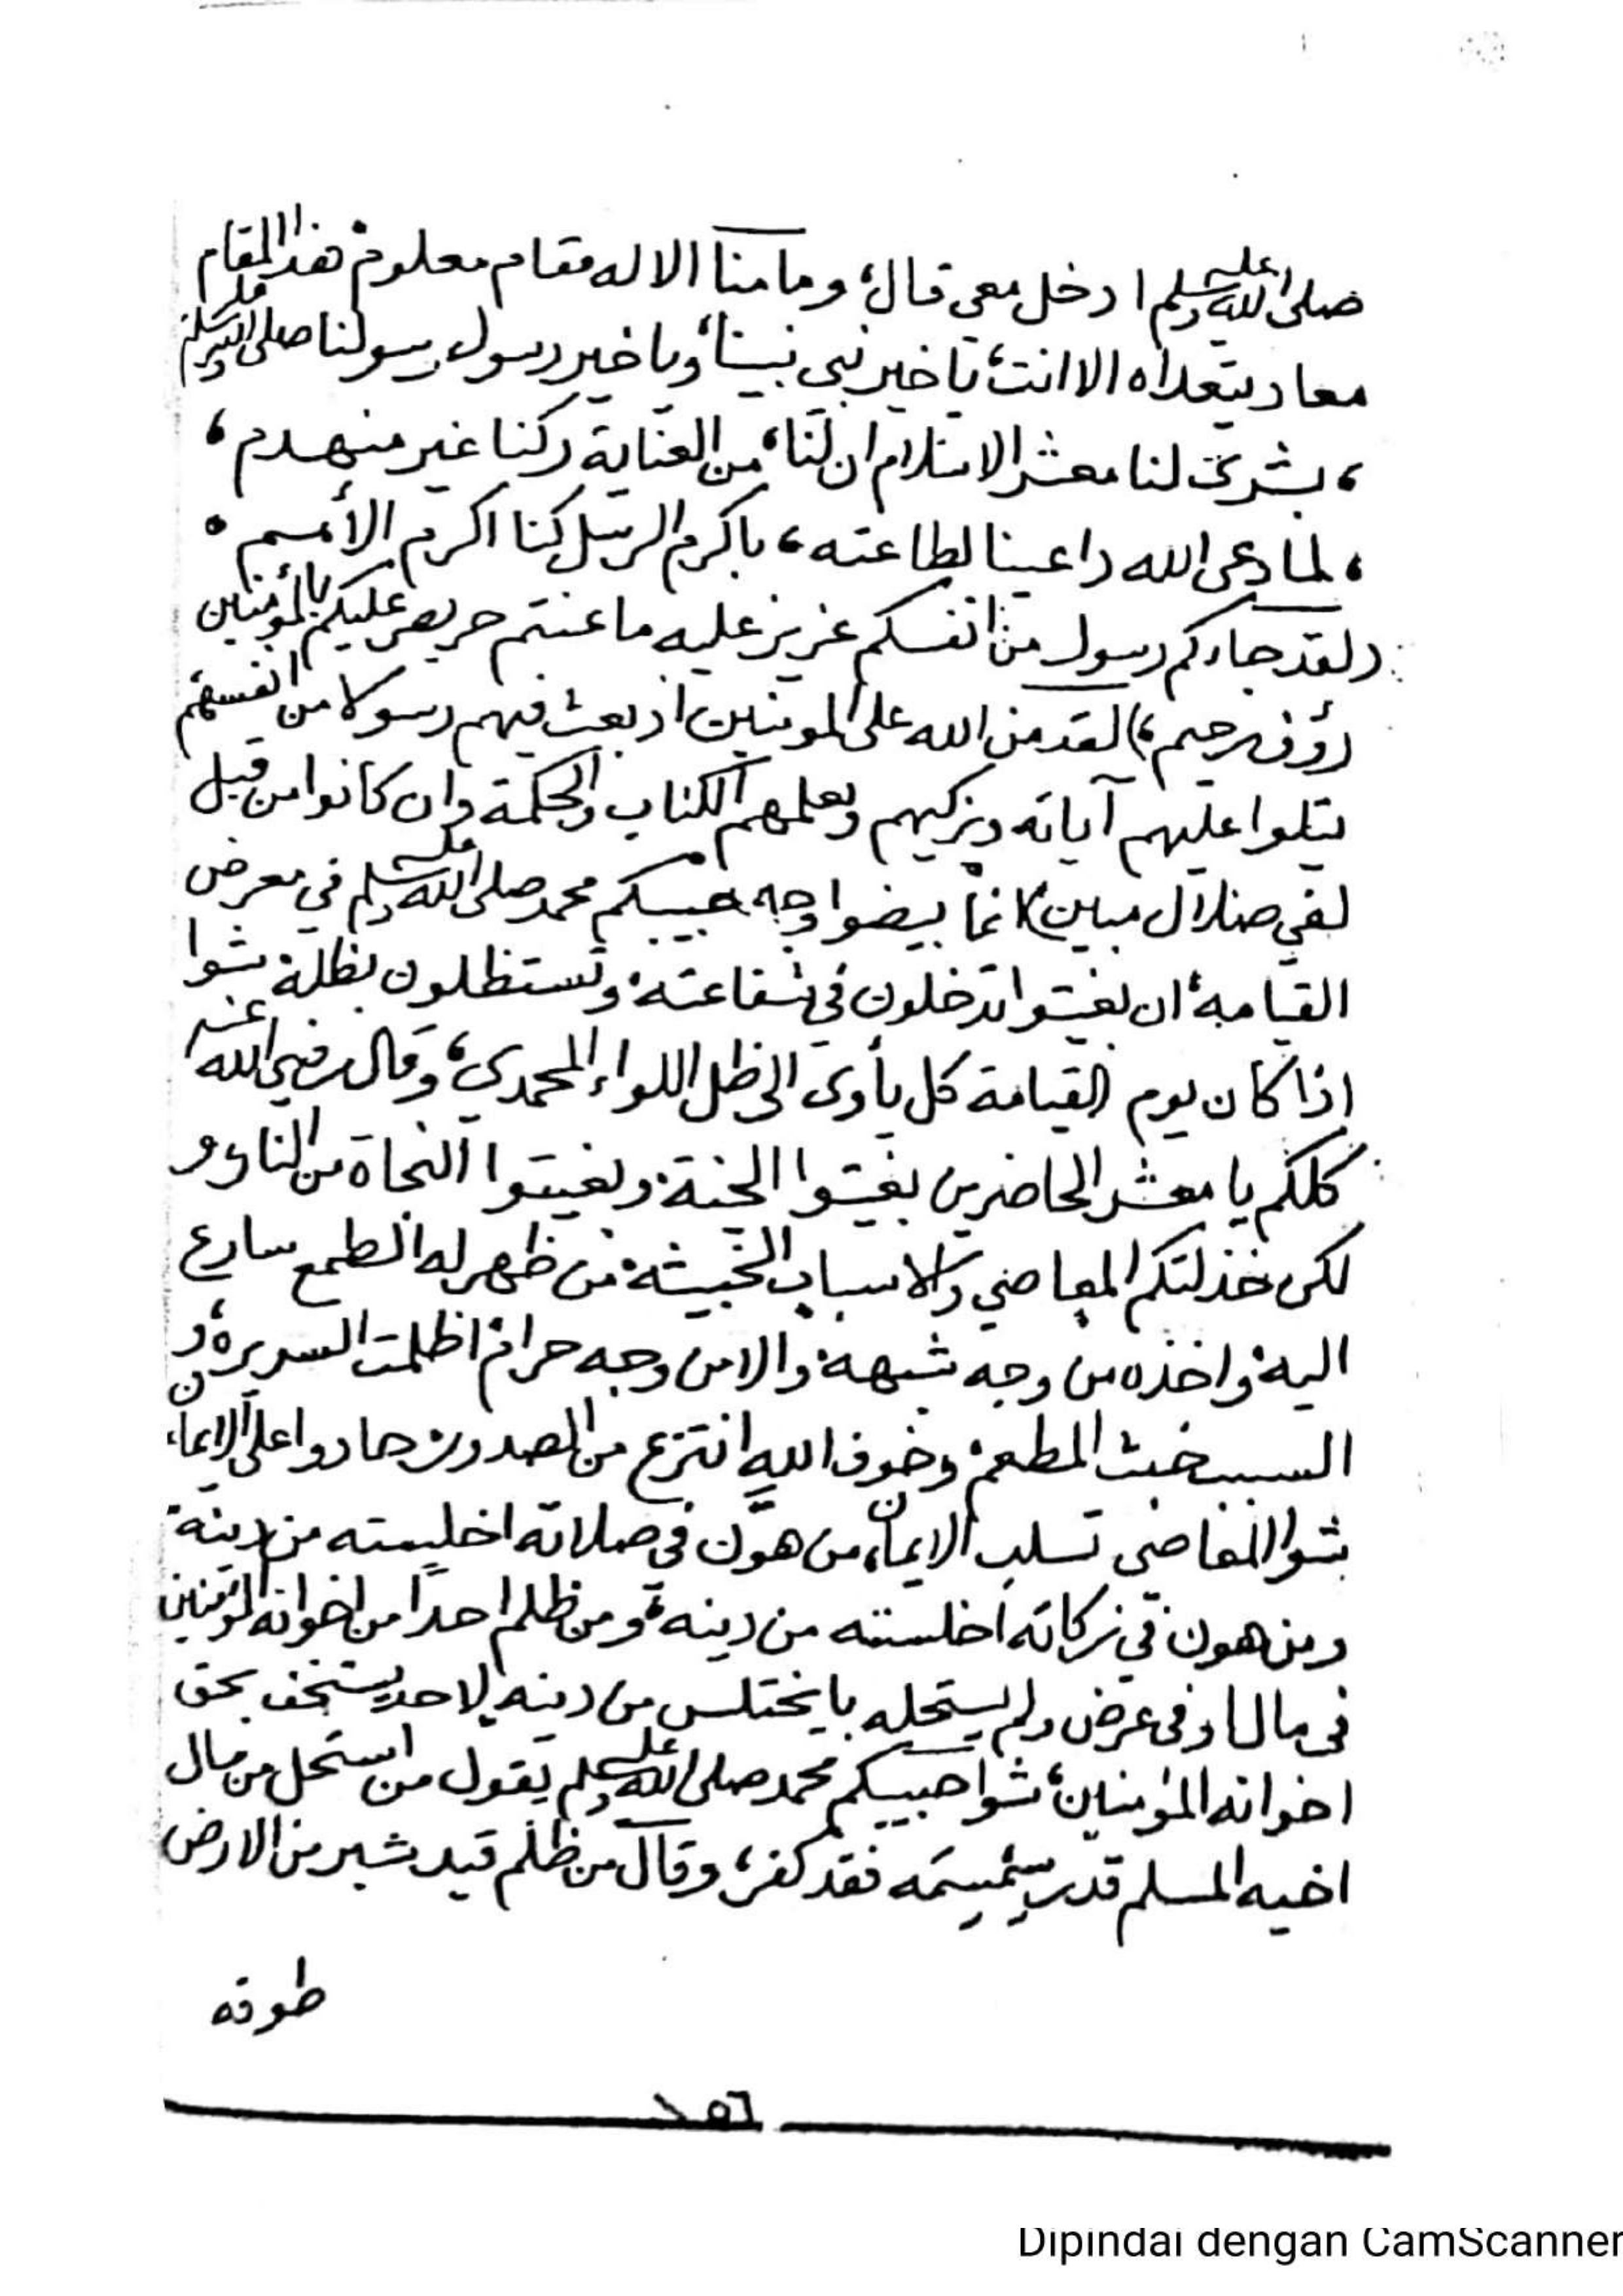 صلى الله عليه وسلم ادخل معي قال؛ وما منا الا له مقام معلوم، هذا المقام
معاد يتعداه الا انت؛ يا خير نبي نبينا، ويا خير رسول رسولنا صلى الله عليه وسلم
، بشرى لنا معشر الاسلام ان لنا، من العناية ركنا غير منهدم،
، لما دعى الله داعينا لطاعته، باكرم الرسل كنا اكرم الأمم.
(لقد جاءكم رسول من انفسكم عزيز عليه ما عنتم حريص عليكم بالمؤمنين
رؤف رحيم،) لقد من الله على المومنين اذ بعث فيهم رسولا من انفسهم
يتلوا عليهم آياته ويزكيهم ويعلمهم الكتاب والحكمة وان كانوا من قبل
لفي ضلال مبين) انما بيضوا وجه حبيبكم محمد صلى الله عليه وسلم في معرض
القيامة، ان بغيتوا تدخلون في شفاعته، وتستظلون بظله، شوا
اذا كان يوم القيامة كل يأوى الى ظل اللواء المحمدي؛ وقال رضي الله عنه
كلكم يا معشر الحاضرين بغيتوا الجنة، وبغيتوا النجاة من النار، و
لكن خذلتكم المعاصي والاسباب الخبيثة، من ظهر له الطمع سارع
اليه، واخذه من وجه شبهة، والا من وجه حرام، اظلمت السريرة، و
السبب خبث المطعم، وخوف الله انتزع من الصدور، حادوا على الايمان،
شوا المعاصي تسلب الايمان، من هوّن في صلاته اختلسته من دينه،
ومن هون في زكاته اختلسته من دينه، ومن ظلم احدا من اخوانه المؤمنين
في مال او في عرض ولم يستحله با يختلس من دينه، لا حد يستخف بحق
اخوانه المؤمنين، شوا حبيبكم محمد صلى الله عليه وسلم يقول من استحل من مال
اخيه المسلم قدر سمسمه فقد كفر؛ وقال من ظلم قيد شبر من الارض
طوقه
٢٥٦
Dipindai dengan CamScanner